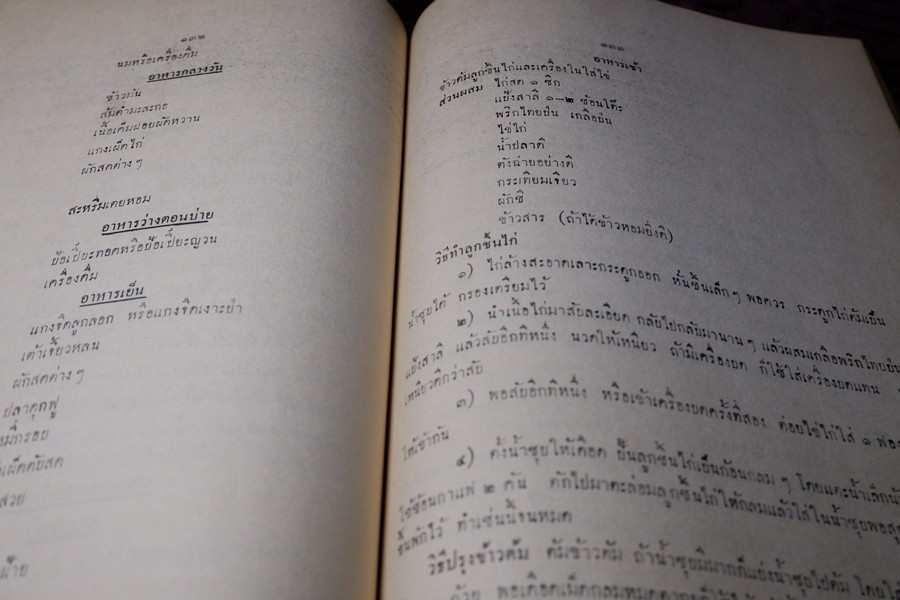 ๑๓๒
นมหรือเครื่องดื่ม
อาหารกลางวัน
ข้าวมัน
ส้มตำมะละกอ
เนื้อเค็มฝอยผัดหวาน
แกงเผ็ดไก่
ผักสดต่าง ๆ
สะหริ่มเตยหอม
อาหารว่างตอนบ่าย
ป้อเปี๊ยะทอดหรือป้อเปี๊ยะญวน
เครื่องดื่ม
อาหารเย็น
แกงจืดลูกลอก หรือแกงจืดเงาะยำ
เต้าเจี้ยวหลน
ผักสดต่าง ๆ
ปลาดุกฟู
หมี่กรอบ
๑๓๓
อาหารเช้า
ข้าวต้มลูกชิ้นไก่และเครื่องในใส่ไข่
ส่วนผสม ไก่สด ๑ ซีก
แป้งสาลี ๑–๒ ช้อนโต๊ะ
พริกไทยป่น เกลือป่น
ไข่ไก่
น้ำปลาดี
ตังฉ่ายอย่างดี
กระเทียมเจียว
ผักชี
ข้าวสาร (ถ้าได้ข้าวหอมยิ่งดี)
วิธีทำลูกชิ้นไก่
๑) ไก่ล้างสะอาดเลาะกระดูกออก หั่นชิ้นเล็ก ๆ พอควร กระดูกไก่ต้มเป็น
น้ำซุปได้ กรองเตรียมไว้
๒) นำเนื้อไก่มาสับละเอียด กลับไปกลับมานาน ๆ แล้วผสมเกลือพริกไทยป่น
แป้งสาลี แล้วสับอีกทีหนึ่ง นวดให้เหนียว ถ้ามีเครื่องบด ก็ใช้ใส่เครื่องบดแทน
เหนียวดีกว่าสับ
๓) พอสับอีกทีหนึ่ง หรือเข้าเครื่องบดครั้งที่สอง ต่อยไข่ไก่ใส่ ๑ ฟอง
ให้เข้ากัน
๔) ตั้งน้ำซุปให้เดือด ปั้นลูกชิ้นไก่เป็นก้อนกลม ๆ โดยแตะน้ำเล็กน้
ใช้ช้อนกาแฟ ๒ คัน ตักไปมาตะล่อมลูกชิ้นไก่ให้กลมแล้วใส่ในน้ำซุปพอสุก
ขึ้นพักไว้ ทำเช่นนี้จนหมด
วิธีปรุงข้าวต้ม ต้มข้าวต้ม ถ้าน้ำซุปมีมากก็แบ่งน้ำซุปไปต้ม โดยใส่
ด้วย